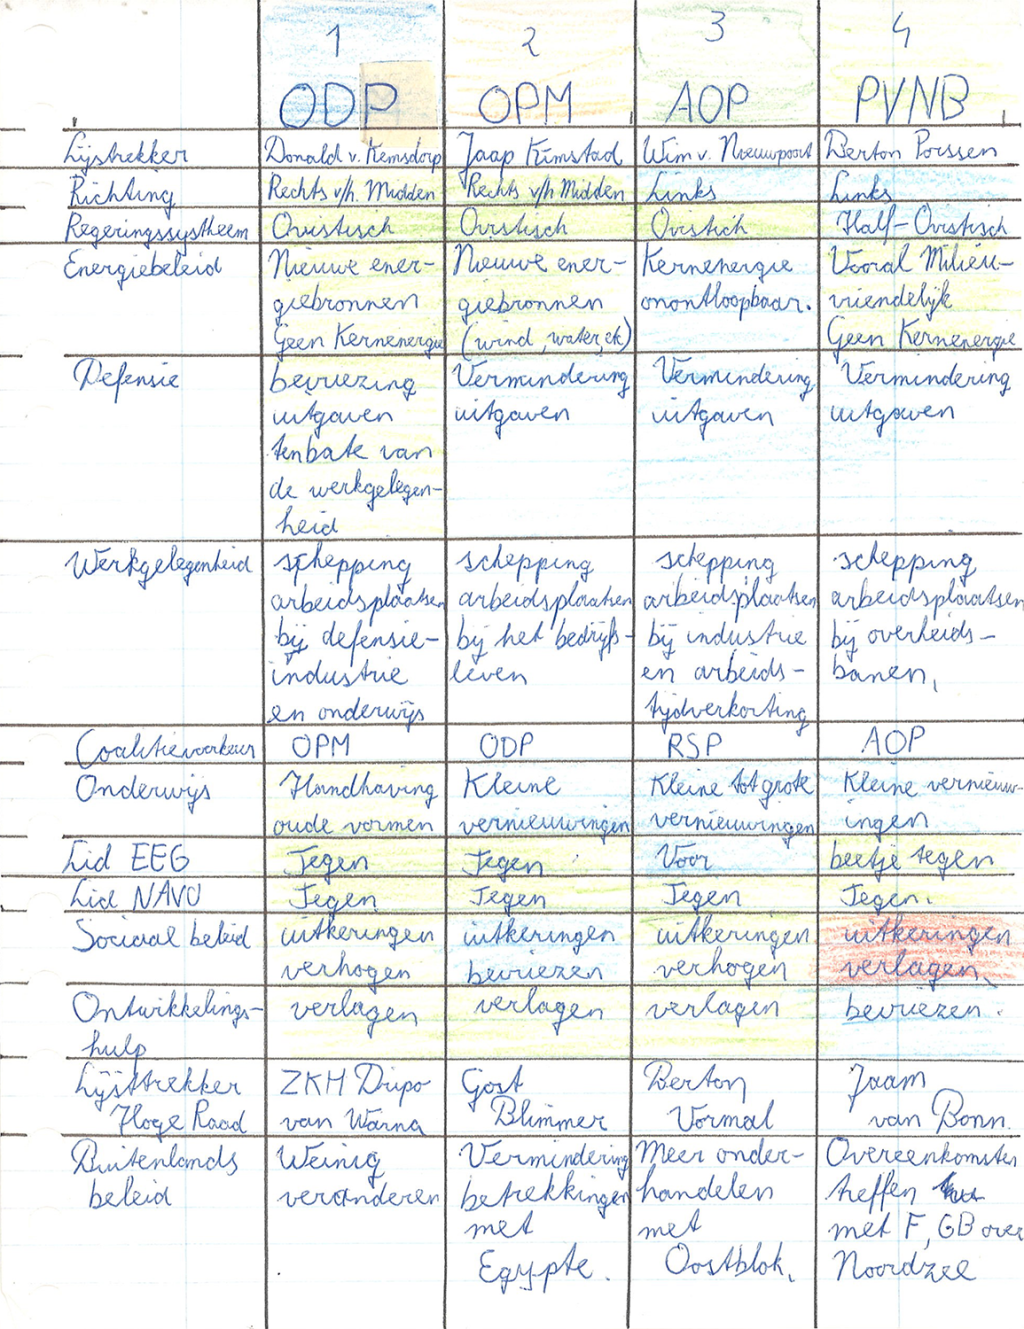 1 2 3 4
ODP OPM AOP PVNB
Lijstrekker Donald v. Kemsdorp Jaap Kimstad Wim v. Nieuwpoort Berton Porssen
Richting Rechts v/h. Midden Rechts v/h Midden Links Links
Regeringssystheem Ovistisch Ovistisch Ovistich Half-Ovistisch
Energiebeleid Nieuwe ener- Nieuwe ener- Kernenergie Vooral Milieu-
giebronnen giebronnen onontloopbaar. vriendelijk
Geen Kernenergie (wind, water, ek) Geen Kernenergie
Defensie bevriezing Vermindering Vermindering Vermindering
uitgaven uitgaven uitgaven uitgaven
tenbate van
de werkgelegen-
heid
Werkgelegenheid schepping schepping schepping schepping
arbeidsplaatsen arbeidsplaatsen arbeidsplaatsen arbeidsplaatsen
bij defensie- bij het bedrijfs- bij industrie bij overheids-
industrie leven en arbeids- banen,
en onderwijs tijdverkorting
Coalitievoorkeur OPM ODP RSP AOP
Onderwijs Handhaving Kleine Kleine tot grote Kleine vernieuw-
oude vormen vernieuwingen vernieuwingen ingen
Lid EEG Tegen Tegen Voor beetje tegen
Lid NAVO Tegen Tegen Tegen Tegen.
Sociaal beleid uitkeringen uitkeringen uitkeringen uitkeringen
verhogen bevriezen verhogen verlagen
Ontwikkelings- verlagen verlagen verlagen bevriezen.
hulp
Lijsttrekker ZKH Dripo Gost Berton Jaam
Hoge Raad van Warna Blimmer Vormal van Bonn.
Buitenlands Weinig Vermindering Meer onder- Overeenkomsten
beleid veranderen betrekkingen handelen treffen
met met met F, GB over
Egypte. Oostblok, Noordzee